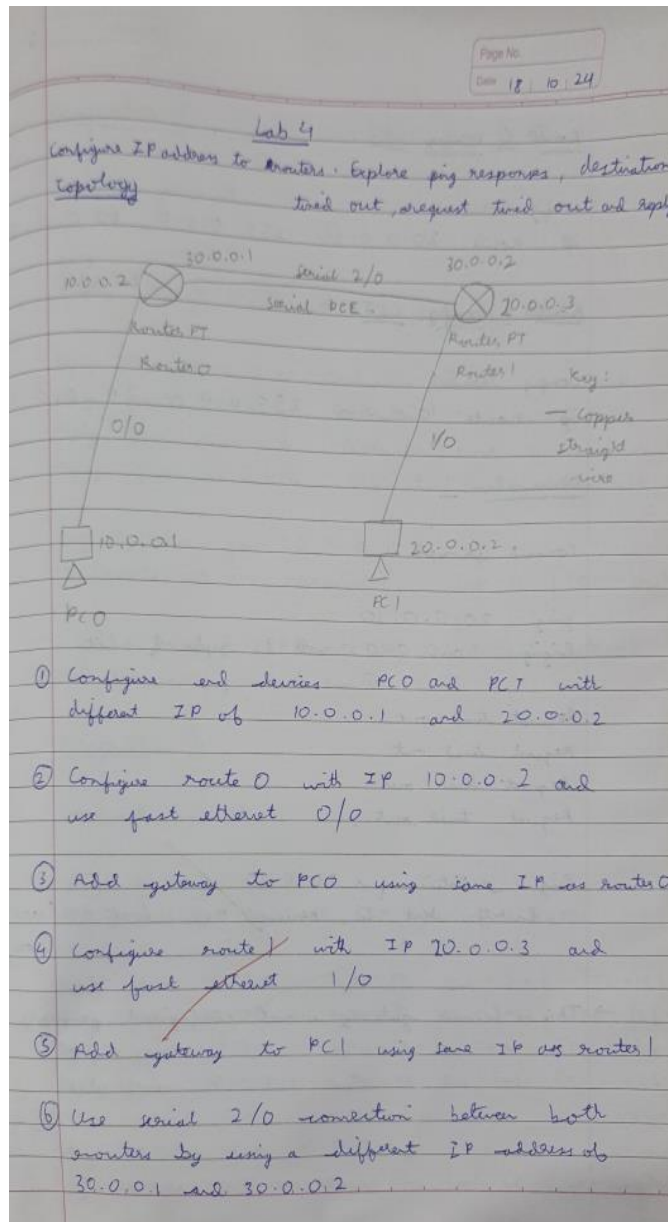 Page No.
Date 18 10 24
Lab 4
Configure IP address to routers. Explore ping responses, destination
topology timed out, request timed out and repl
30.0.0.1 serial 2/0 30.0.0.2
10.0.0.2 serial DCE. 20.0.0.3
Router, PT Router, PT
Router 0 Router 1 Key:
0/0 1/0 — Copper
straight
wire
10.0.0.1 20.0.0.2.
PC0 PC1
① Configure end devices PC0 and PC1 with
different IP of 10.0.0.1 and 20.0.0.2
② Configure route 0 with IP 10.0.0.2 and
use fast ethernet 0/0
③ Add gateway to PC0 using same IP as router 0
④ Configure route 1 with IP 20.0.0.3 and
use fast ethernet 1/0
⑤ Add gateway to PC1 using same IP as router 1
⑥ Use serial 2/0 connection between both
routers by using a different IP address of
30.0.0.1 and 30.0.0.2